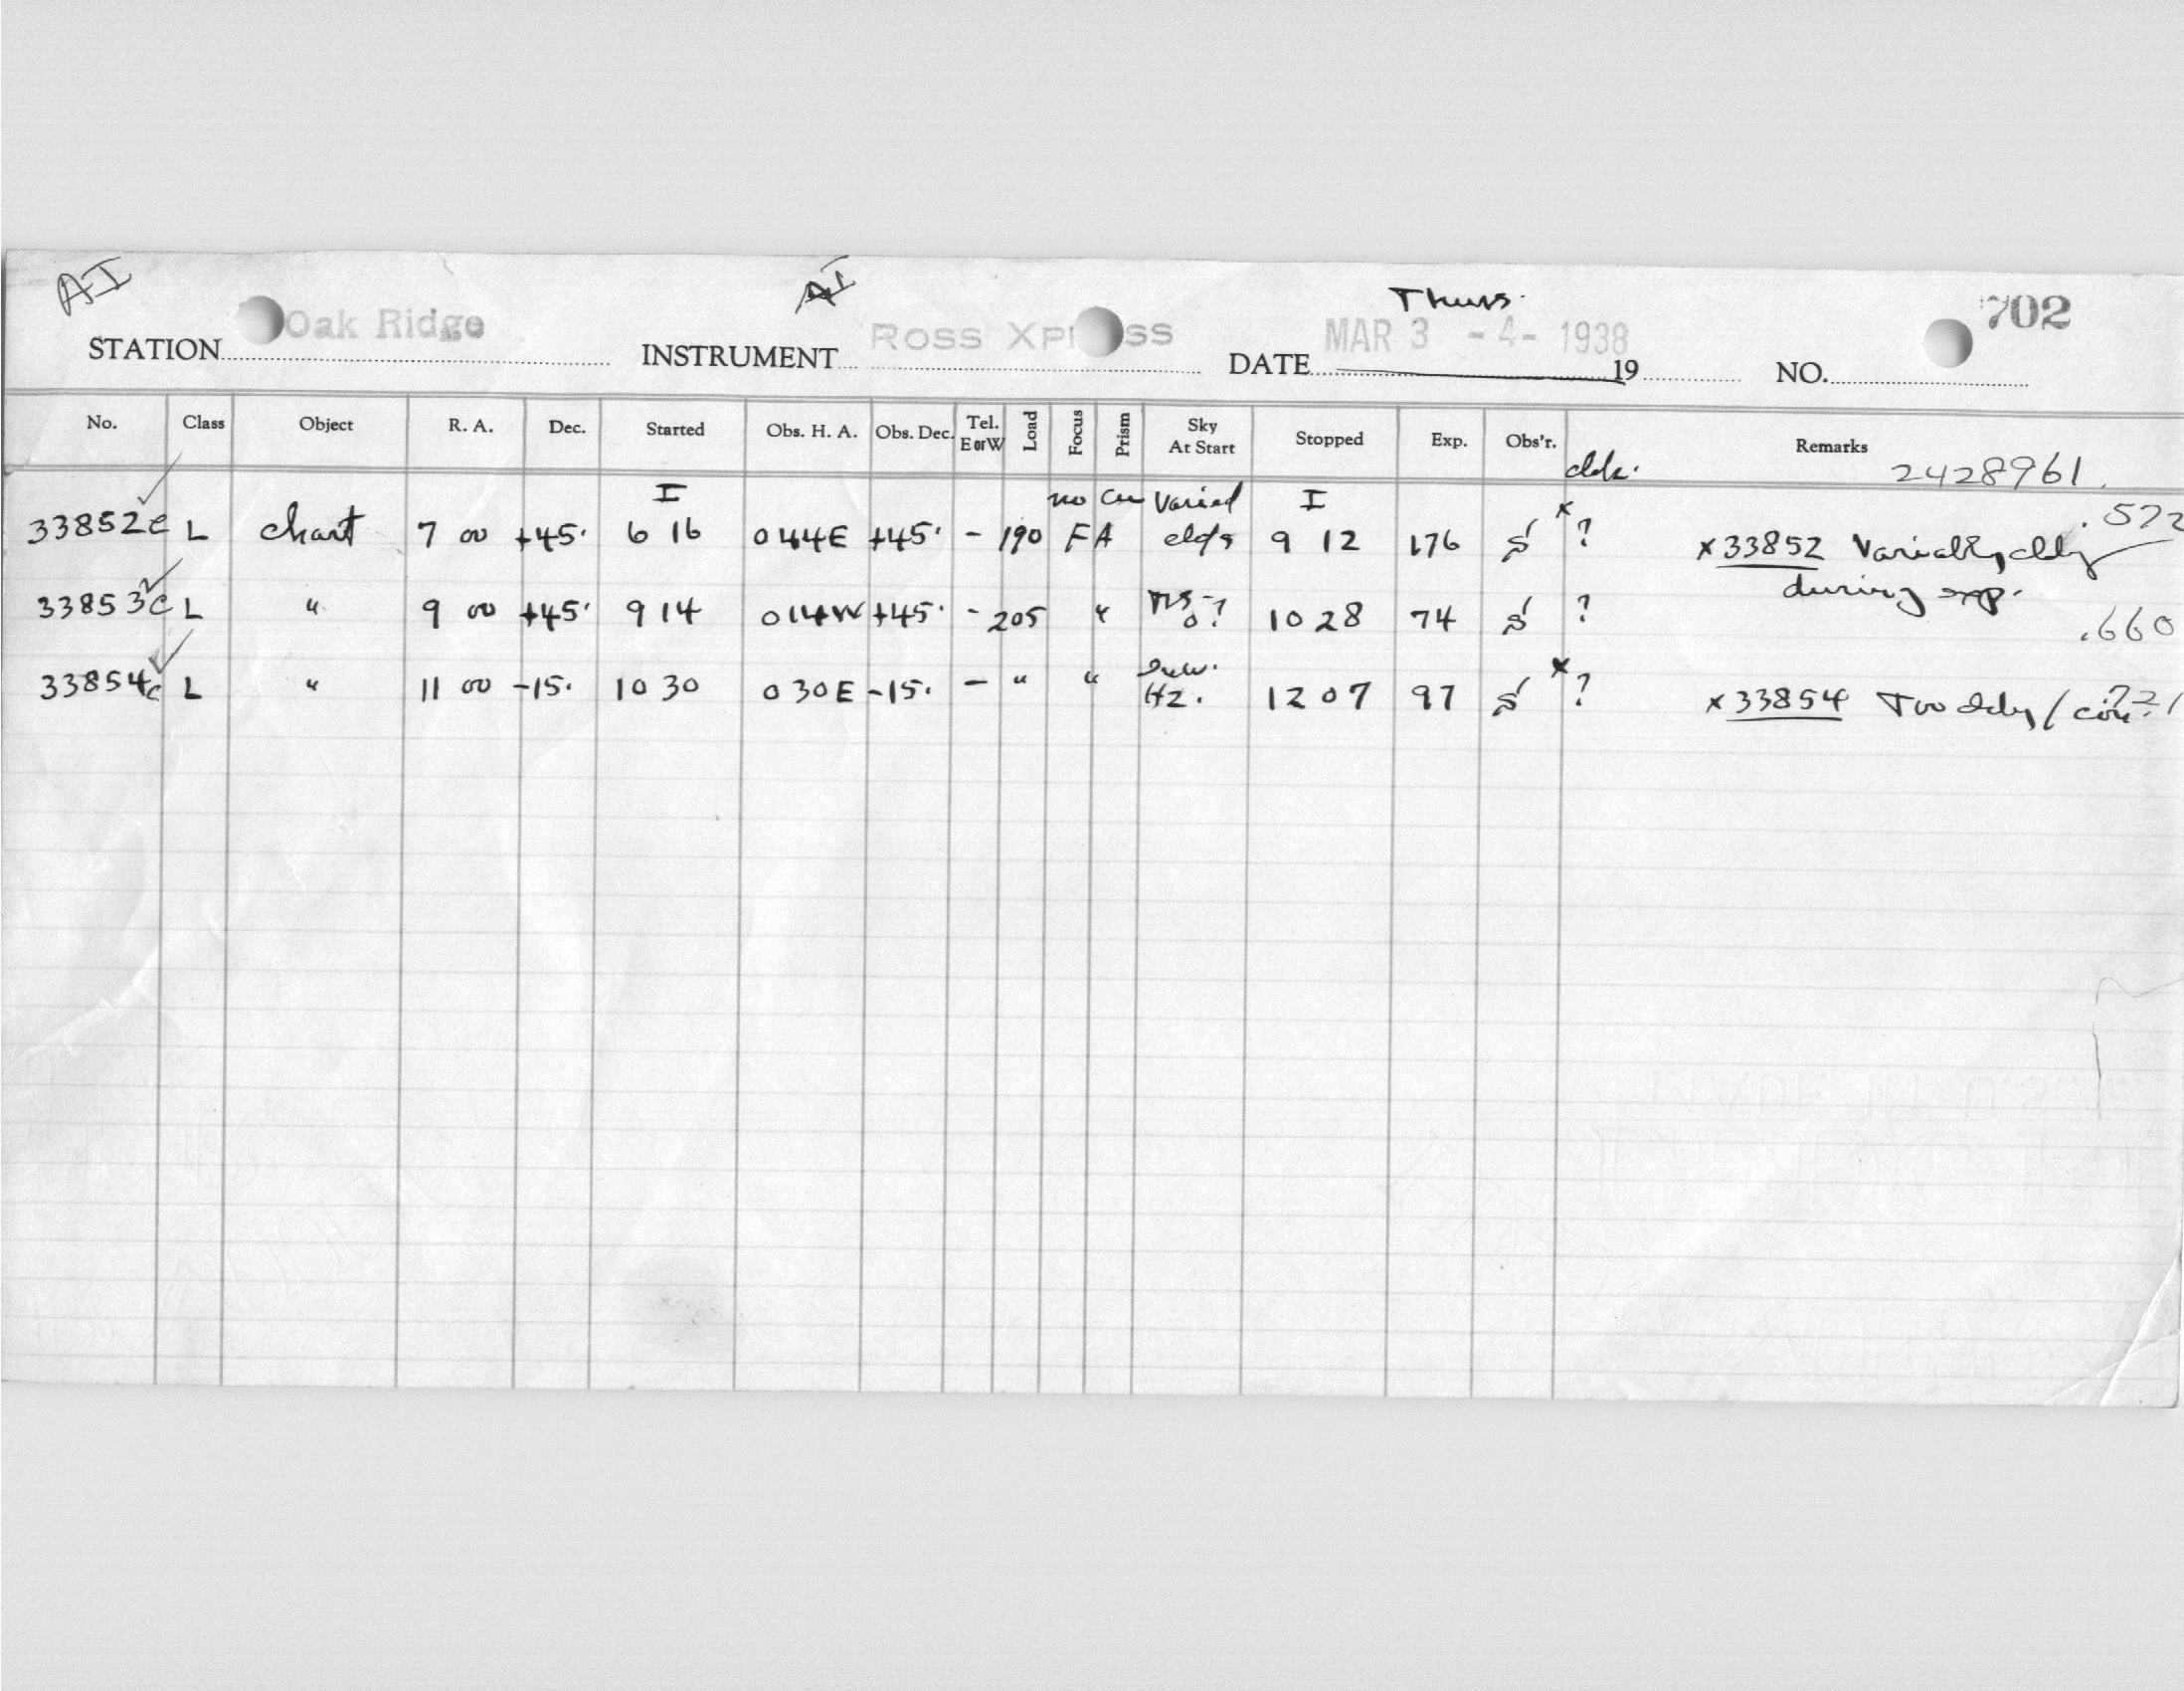 AI AI Thurs. 702
STATION Oak Ridge INSTRUMENT Ross Xpress DATE MAR 3 -4- 1938 19 NO.
No. Class Object R. A. Dec. Started Obs. H. A. Obs. Dec. Tel. E or W Load Focus Prism Sky At Start Stopped Exp. Obs'r. Remarks
2428961.
I no Varied I .572
33852c L chart 7 00 +45° 6 16 0 44E +45° - 190 FA clds 9 12 176 S x ? x33852 Variably cldy
during exp.
33853c L " 9 00 +45° 9 14 0 14W +45° - 205 " 10 28 74 S ? .660
33854c L " 11 00 -15° 10 30 0 30E -15° - " " Hz. 12 07 97 S x ? x33854 Too cldy / .721